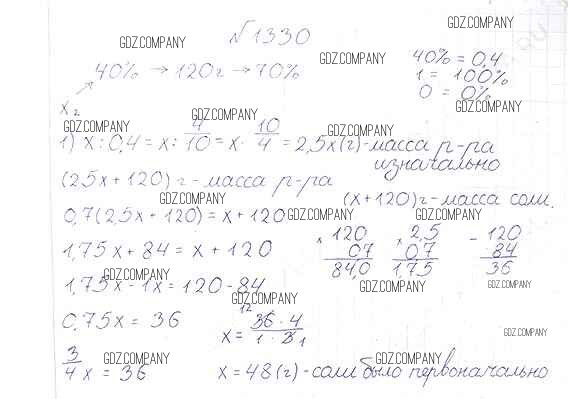 GDZ.COMPANY
№1330
GDZ.COMPANY
GDZ.COMPANY
40% → 120г → 70%
40% = 0,4
1 = 100%
0 = 0%
GDZ.COMPANY
x г
GDZ.COMPANY
GDZ.COMPANY
GDZ.COMPANY
1) x : 0,4 = x : 4/10 = x · 10/4 = 2,5x (г) - масса р-ра
изначально
(2,5x + 120) г - масса р-ра
GDZ.COMPANY
(x + 120) г - масса соли.
0,7(2,5x + 120) = x + 120
GDZ.COMPANY
GDZ.COMPANY
1,75x + 84 = x + 120
× 120
0,7
84,0
× 2,5
0,7
1,75
- 120
84
36
GDZ.COMPANY
GDZ.COMPANY
GDZ.COMPANY
1,75x - 1x = 120 - 84
GDZ.COMPANY
0,75x = 36
x = 36 · 4 / 1 · 3 12 1
GDZ.COMPANY
GDZ.COMPANY
GDZ.COMPANY
3/4 x = 36
x = 48 (г) - соли было первоначально